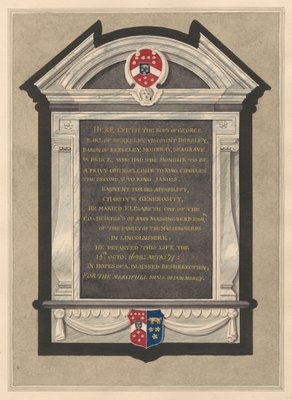 HERE LYETH THE BODY OF GEORGE
EARL OF BERKELEY, VISCOUNT DURSLEY,
BARON OF BERKELEY, MOUBRAY, SEAGRAVE
& BRUCE, WHO HAD THE HONOUR TO BE
A PRIVY COUNSELLOUR TO KING CHARLES
THE SECOND, & TO KING JAMES:
EMINENT FOR HIS AFFABILITY,
CHARITY & GENEROSITY.
HE MARIED ELISABETH ONE OF THE
CO-HEIRESS'S OF JOHN MASSINGBERD ESQ:
OF THE FAMILY OF THE MASSINGBERDS
IN LINCOLNSHIRE:
HE DEPARTED THIS LIFE THE
OCTO: 1698: ÆTAT: 71:
IN HOPES OF A BLESSED RESURRECTION;
FOR THE MERCIFULL SHALL OBTAIN MERCY.